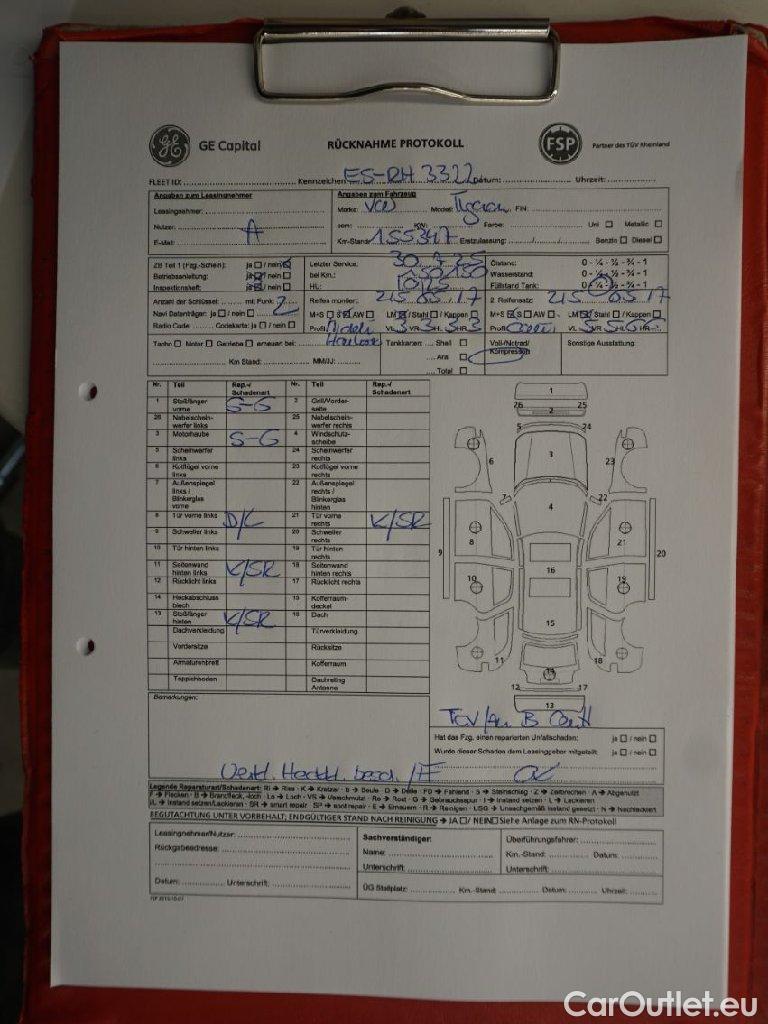 GE Capital
RÜCKNAHME PROTOKOLL
FSP
Partner des TÜV Rheinland
Kennzeichen ES-RH 3322 Datum: Uhrzeit:
Angaben zum Leasingnehmer
Angaben zum Fahrzeug
Leasingnehmer:
Marke: VW Modell: Tiguan FIN:
Nutzer: A
Farbe: Uni Metallic
E-Mail:
Km-Stand: 155347 Erstzulassung: Benzin Diesel
ZB Teil 1 (Fzg.-Schein): ja / nein
Betriebsanleitung: ja / nein
Inspektionsheft: ja / nein
Letzter Service: 30
bei Km.: 150/150
HU:
Ölstand: 0 - ¼ - ½ - ¾ - 1
Wasserstand 0 - ¼ - ½ - ¾ - 1
Füllstand Tank: 0 - ¼ - ½ - ¾ - 1
Anzahl der Schlüssel: mit Funk: 2
Reifen montiert: 215 65 17
2. Reifensatz: 215 65 17
Navi Datenträger: ja / nein
M+S S AW LM / Stahl / Kappen
M+S S AW LM / Stahl / Kappen
Radio Code Codekarte: ja / nein
Tacho Motor Getriebe erneuert bei:
Km Stand: MM/JJ:
Tankkarten: Shell
Aral
Total
Voll-/Notrad/
Kompressor
Sonstige Ausstattung:
Nr. Teil Rep.-/ Schadenart Nr. Teil Rep.-/ Schadenart
1 Stoßfänger vorne S-G 2 Grill/Vorderseite
26 Nebelscheinwerfer links 25 Nebelscheinwerfer rechts
3 Motorhaube S-G 4 Windschutzscheibe
5 Scheinwerfer links 24 Scheinwerfer rechts
6 Kotflügel vorne links 23 Kotflügel vorne rechts
7 Außenspiegel links / Blinkerglas vorne 22 Außenspiegel rechts / Blinkerglas hinten
8 Tür vorne links D/L 21 Tür vorne rechts K/SR
9 Schweller links 20 Schweller rechts
10 Tür hinten links 19 Tür hinten rechts
11 Seitenwand hinten links K/SR 18 Seitenwand hinten rechts
12 Rücklicht links 17 Rücklicht rechts
14 Heckabschlussblech 15 Kofferraumdeckel
13 Stoßfänger hinten K/SR 16 Dach
Dachverkleidung Türverkleidung
Vordersitze Rücksitze
Armaturenbrett Kofferraum
Teppichboden Dachreling Antenne
1
26 25
2
5 24
6 3 23
7 22
4
8 21
9 20
16
10 19
15
11 18
14
12 17
13
Bemerkungen:
Hat das Fzg. einen reparierten Unfallschaden: ja / nein
Wurde dieser Schaden dem Leasinggeber mitgeteilt: ja / nein
Legende Reparaturart/Schadenart: Ri → Riss · K → Kratzer · B → Beule · D → Delle · FD → Fehlend · S → Steinschlag · Z → Zerbrochen · A → Abgenutzt
BEGUTACHTUNG UNTER VORBEHALT; ENDGÜLTIGER STAND NACH REINIGUNG → JA / NEIN Siehe Anlage zum RN-Protokoll
Leasingnehmer/Nutzer:
Sachverständiger:
Überführungsfahrer:
Rückgabeadresse:
Name:
Km.-Stand: Datum:
Unterschrift:
Unterschrift:
Datum: Unterschrift:
ÜG Stellplatz: Km.-Stand: Datum: Uhrzeit:
CarOutlet.eu